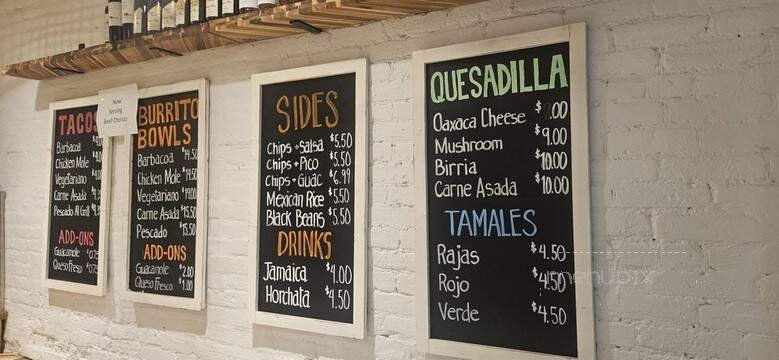 TACOS
Barbacoa
Chicken Mole
Vegetariano
Carne Asada
Pescado Al Grill
ADD-ONS
Guacamole
Queso Fresco
Now
Serving
Beef Chorizo
BURRITO
BOWLS
Barbacoa $14.50
Chicken Mole $14.50
Vegetariano $14.00
Carne Asada $15.50
Pescado $15.50
ADD-ONS
Guacamole $2.00
Queso Fresco $1.00
SIDES
Chips + Salsa $5.50
Chips + Pico $5.50
Chips + Guac $6.99
Mexican Rice $5.50
Black Beans $5.50
DRINKS
Jamaica $4.00
Horchata $4.50
QUESADILLA
Oaxaca Cheese
Mushroom $9.00
Birria $10.00
Carne Asada $10.00
TAMALES
Rajas $4.50
Rojo $4.50
Verde $4.50
menupix